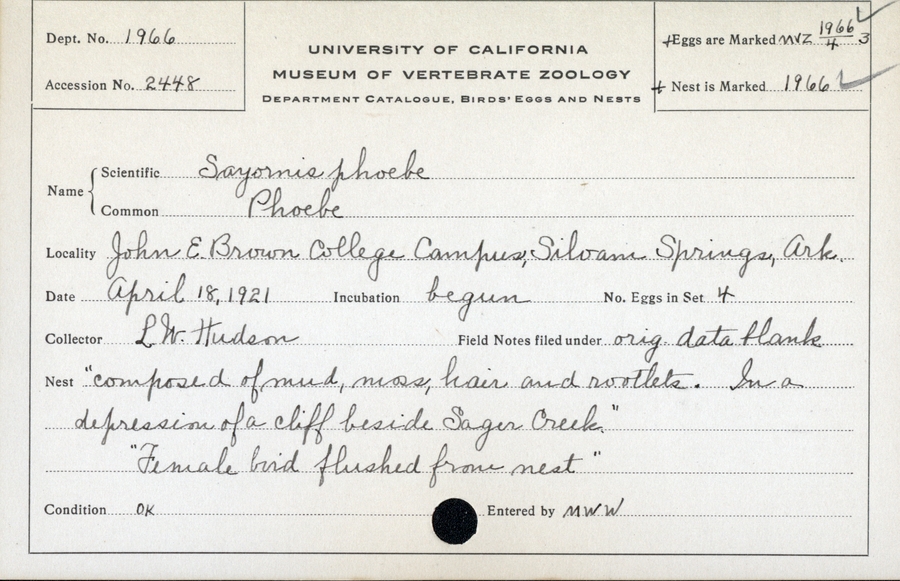 Dept. No. 1966
Accession No. 2448
UNIVERSITY OF CALIFORNIA
MUSEUM OF VERTEBRATE ZOOLOGY
DEPARTMENT CATALOGUE, BIRDS' EGGS AND NESTS
+Eggs are Marked MVZ 1966/4 3
+ Nest is Marked 1966
Name { Scientific Sayornis phoebe
Common Phoebe
Locality John E. Brown College Campus, Siloam Springs, Ark.
Date April 18, 1921 Incubation begun No. Eggs in Set 4
Collector L.W. Hudson Field Notes filed under orig. data blank
Nest "composed of mud, moss, hair and rootlets. In a
depression of a cliff beside Sager Creek."
"Female bird flushed from nest"
Condition OK Entered by MWW